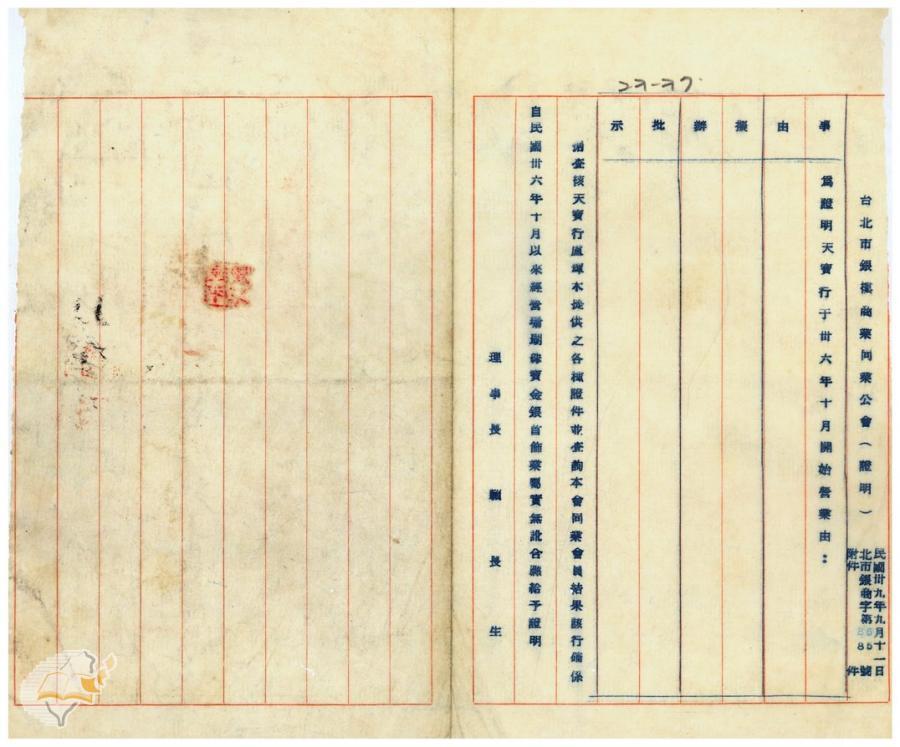 台北市銀樓商業同業公會(證明)
民國卅九年九月十一日
北市銀商字第 號
附件 件
事由擬辦批示
為證明天寶行于卅六年十月開始營業由:
茲查該天寶行 提供之各種證件並查詢本會同業會員結果該行確係
自民國卅六年十月以來經營 珠寶金銀首飾業屬實無訛合 給予證明
理事長 長生